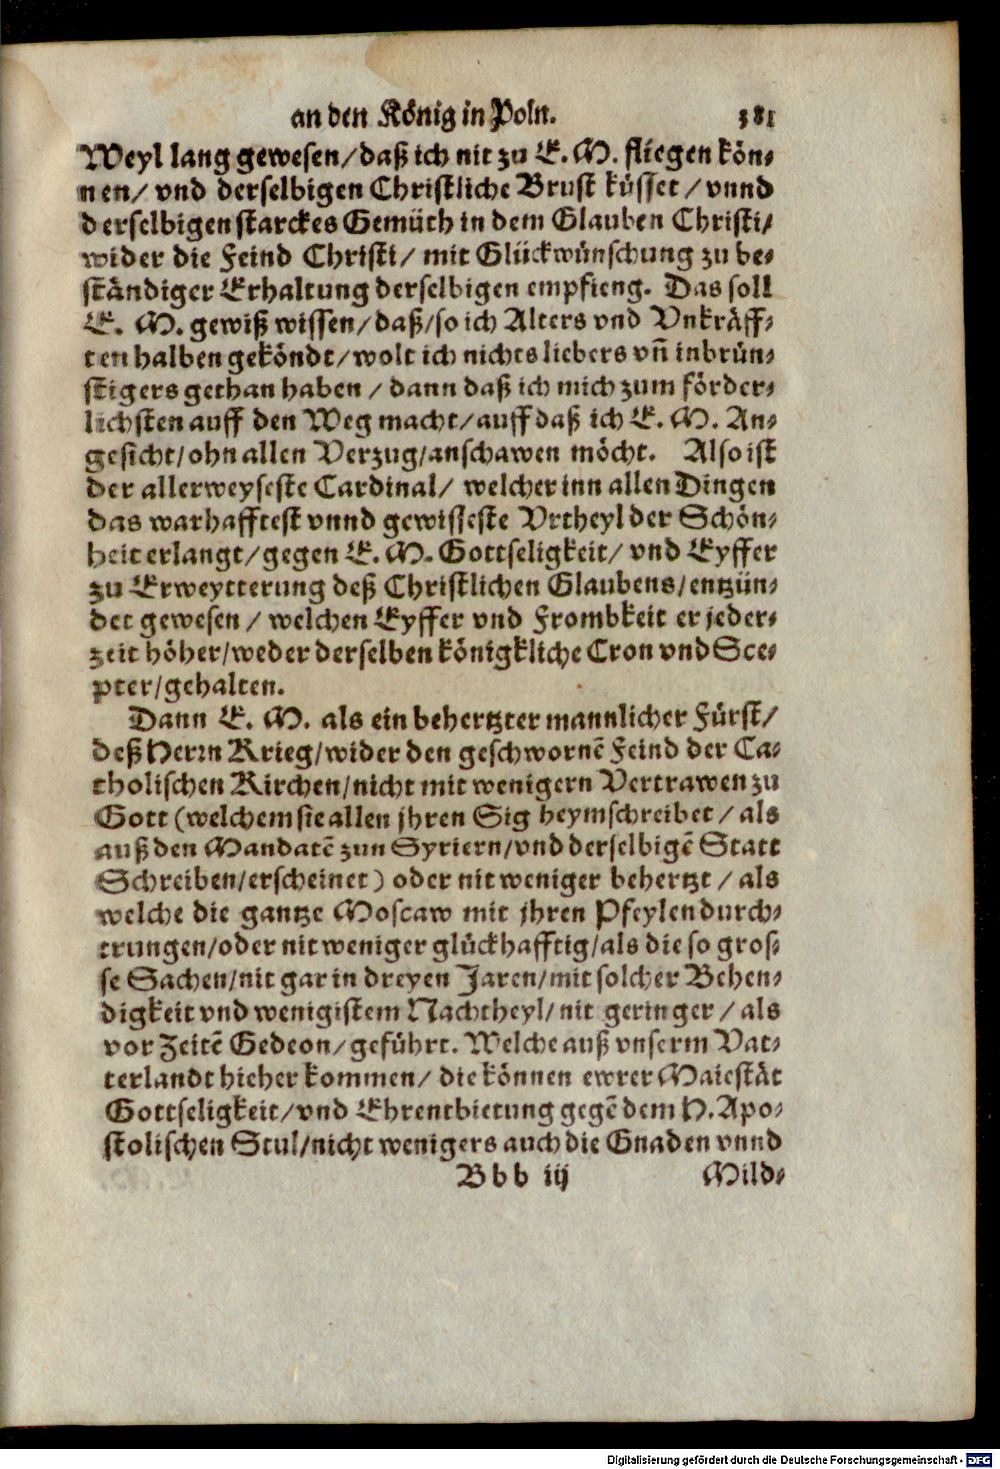 an den König in Poln. 381
Weyl lang gewesen/daß ich nit zu E. M. fliegen kön-
nen/ vnd derselbigen Christliche Brust küsset / vnnd
derselbigen starckes Gemüth in dem Glauben Christi/
wider die Feind Christi/ mit Glückwünschung zu be-
ständiger Erhaltung derselbigen empfieng. Das soll
E. M. gewiß wissen/daß/so ich Alters vnd Vnkräff-
ten halben geköndt/wolt ich nichts liebers vn̄ inbrün-
stigers gethan haben / dann daß ich mich zum förder-
lichsten auff den Weg macht/auff daß ich E. M. An-
gesicht/ohn allen Verzug/anschawen möcht. Also ist
der allerweyseste Cardinal/ welcher inn allen Dingen
das warhafftest vnnd gewisseste Vrtheyl der Schön-
heit erlangt/gegen E. M. Gottseligkeit/ vnd Eyffer
zu Erweytterung deß Christlichen Glaubens/entzün-
det gewesen / welchen Eyffer vnd Frombkeit er jeder-
zeit höher/weder derselben königkliche Cron vnd Sce-
pter/gehalten.
Dann E. M. als ein behertzter mannlicher Fürst/
deß Herrn Krieg/wider den geschwornē Feind der Ca-
tholischen Kirchen/nicht mit wenigern Vertrawen zu
Gott (welchem sie allen jhren Sig heymschreibet / als
auß den Mandatē zun Syriern/vnd derselbigē Statt
Schreiben/erscheinet) oder nit weniger behertzt / als
welche die gantze Moscaw mit jhren Pfeylen durch-
trungen/oder nit weniger glückhafftig/als die so gros-
se Sachen/nit gar in dreyen Jaren/mit solcher Behen-
digkeit vnd wenigistem Nachtheyl/ nit geringer / als
vor Zeitē Gedeon/geführt. Welche auß vnserm Vat-
terlandt hieher kommen/ die können ewrer Maiestät
Gottseligkeit/vnd Ehrentbietung gegē dem H. Apo-
stolischen Stul/nicht wenigers auch die Gnaden vnnd
Bbb iij Mild-
Digitalisierung gefördert durch die Deutsche Forschungsgemeinschaft - DFG